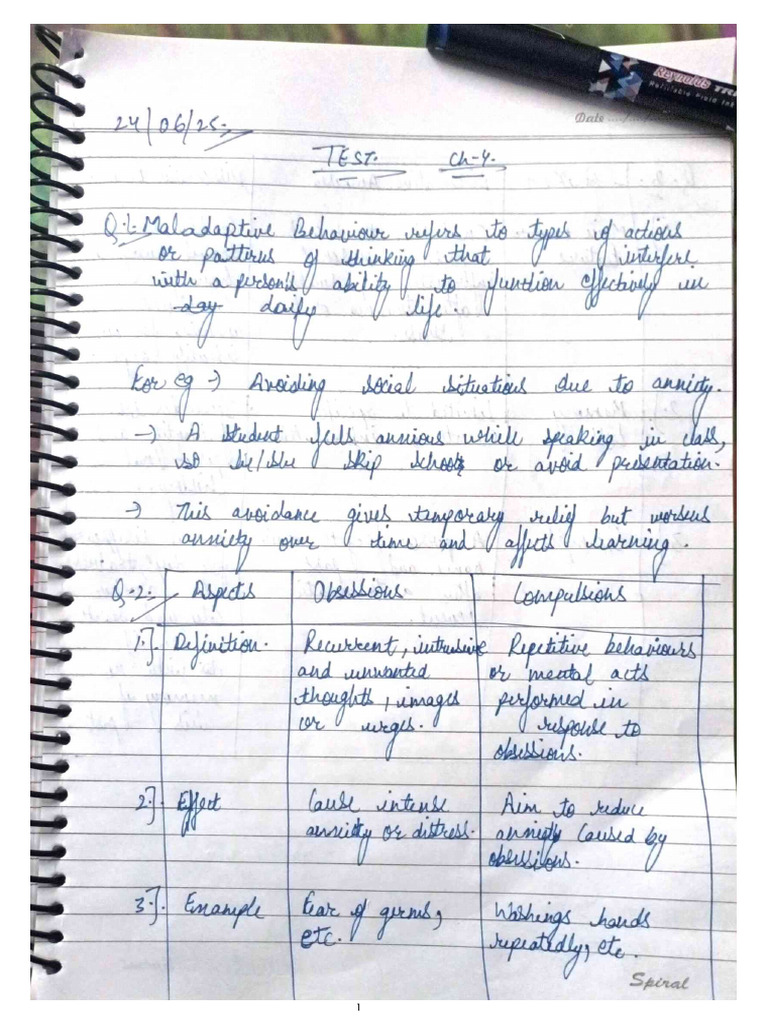 Reynolds TRI
Refillable Fluid Ink
Date ..../..../
24/06/25.
TEST. Ch-4.
Q.1. Maladaptive Behaviour refers to types of actions
or patterns of thinking that interfere
with a person's ability to function effectively in
day daily life.
For eg → Avoiding social situations due to anxiety.
→ A student feels anxious while speaking in class,
so he/she skip school or avoid presentation.
→ This avoidance gives temporary relief but worsens
anxiety over time and affects learning.
Q.2. Aspects Obsessions Compulsions
1.]. Definition. Recurrent, intrusive Repetitive behaviours
and unwanted or mental acts
thoughts, images performed in
or urges. response to
obsessions.
2.]. Effect Cause intense Aim to reduce
anxiety or distress. anxiety caused by
obsessions.
3.]. Example Fear of germs, Washings hands
etc. repeatedly, etc.
Spiral
1